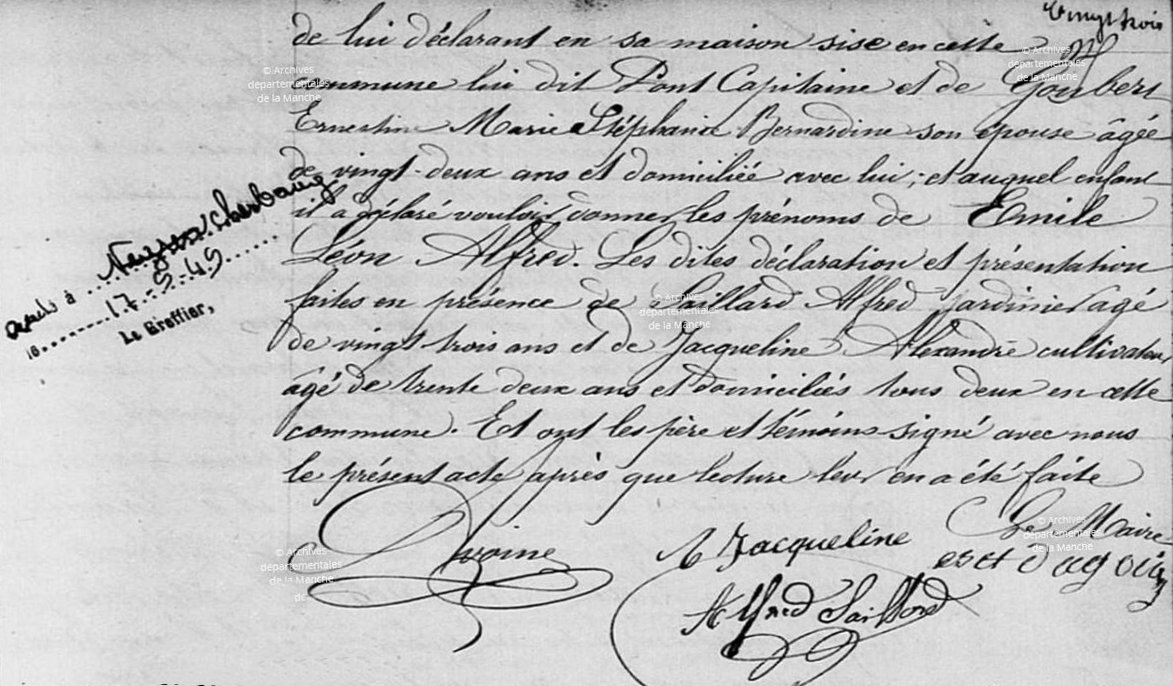 Vingt trois
de lui déclarant en sa maison sise en cette
commune lui dit Pont Capitaine et de Goubert
Ernestine Marie Stéphanie Bernardine son épouse âgée
de vingt-deux ans et domiciliée avec lui; et auquel enfant
il a déclaré vouloir donner les prénoms de Emile
Léon Alfred. Les dites déclaration et présentation
faites en présence de Saillard Alfred jardinier âgé
de vingt trois ans et de Jacqueline Alexandre cultivateur
âgé de trente deux ans et domiciliés tous deux en cette
commune. Et ont les père et témoins signé avec nous
le présent acte après que lecture leur en a été faite
Le Maire
A Jacqueline
Alfred Saillard
à Cherbourg
17.9.49
Le Greffier,
© Archives
départementales
de la Manche
© Archives
départementales
de la Manche
© Archives
départementales
de la Manche
© Archives
départementales
de la Manche
© Archives
départementales
de la Manche